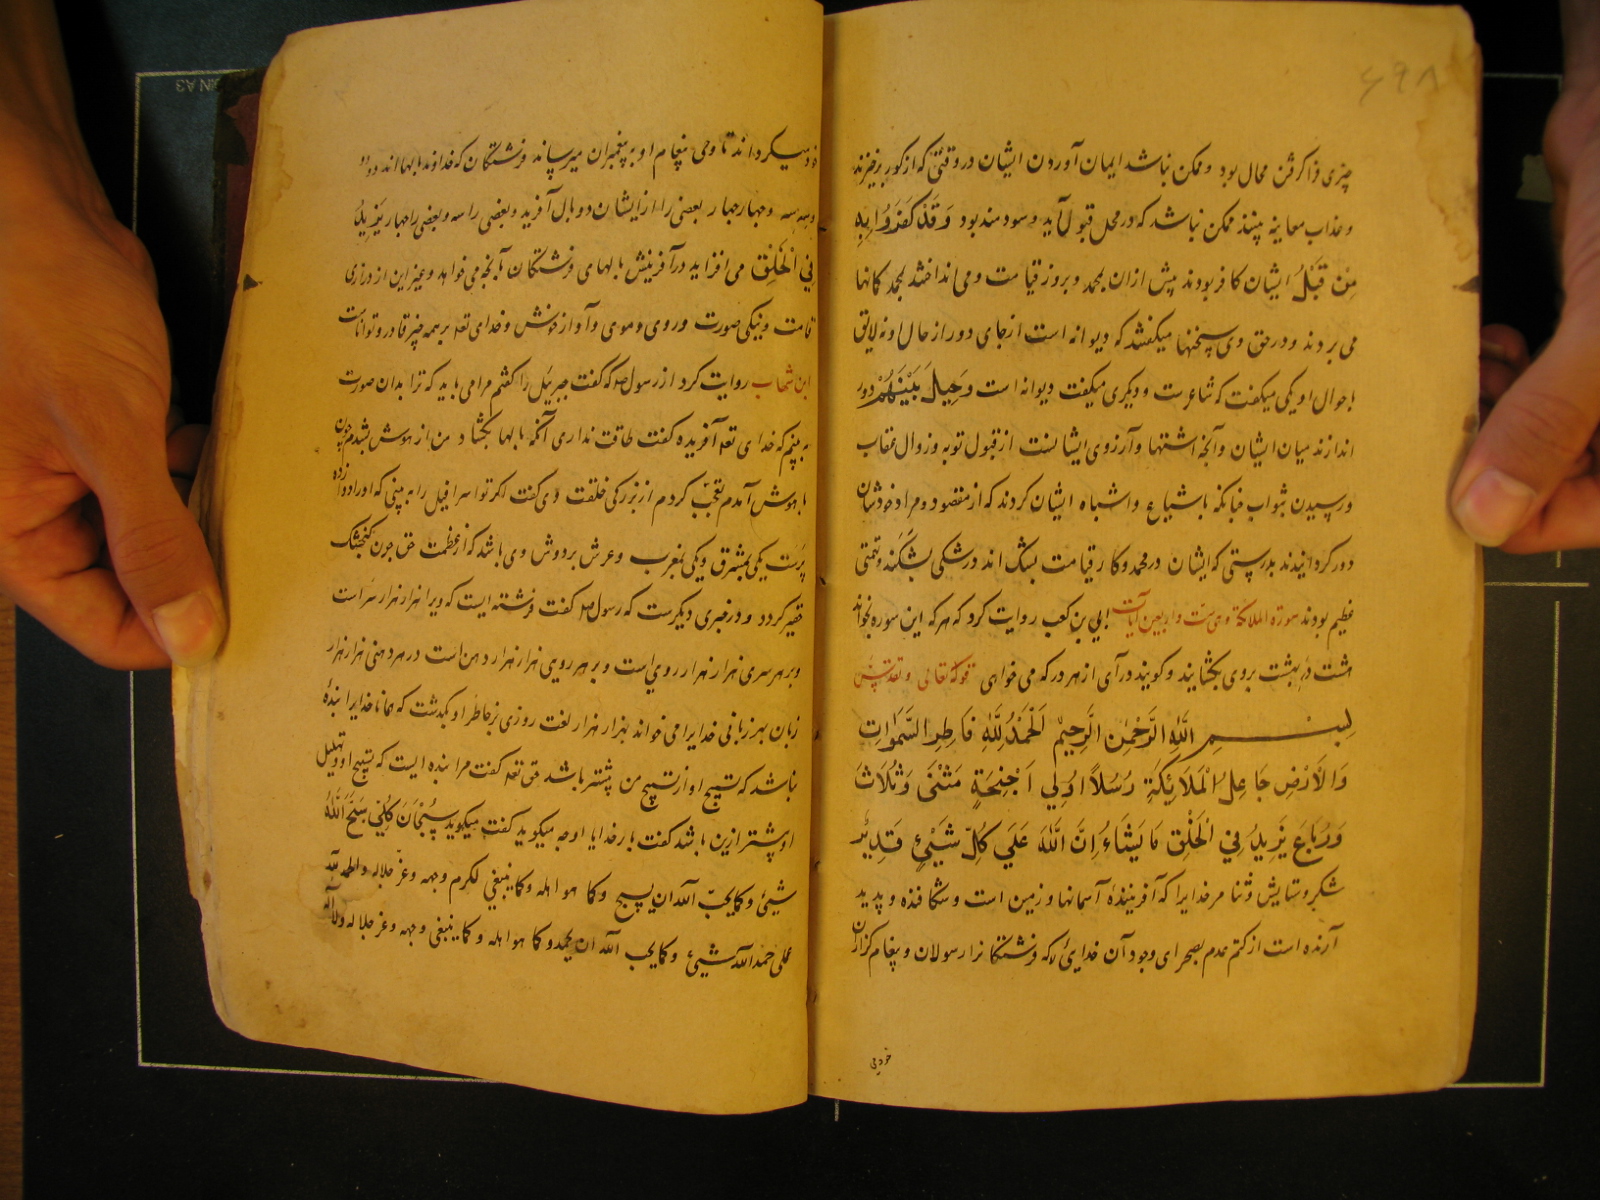 ۶۹۸
چیزی فرا کرفتن محال بود و ممکن نباشد ایمان آوردن ایشان در وقتی که از کور برخیزند
و عذاب معاینه بینند ممکن نباشد که در محل قبول آید و سودمند بود وَقَدْ كَفَرُوا بِهِ
مِنْ قَبْلُ ایشان کافر بودند پیش ازان بمحمد و بروز قیامت و می انداختند بمحمد کمانها
می بردند و در حق وی سخنها میکفتند که دیوانه است از جای دور از حال او نه لایق
باحوال او یکی میکفت که شاعرست و دیکری میکفت دیوانه است وَحِيلَ بَيْنَهُمْ و دور
اندازند میان ایشان و آنچه اشتها و آرزوی ایشانست از قبول توبه و زوال عقاب
و رسیدن بثواب چنانکه باشیاع و اشباه ایشان کردند که از مقصود و مراد خودشان
دور کردانیدند بدرستی که ایشان در محمد و کار قیامت بشک اند در شکی بشکنند و تهمتی
عظیم بودند سورة الملائكة و هی ست و اربعین آیات ابی بن کعب روایت کرد که هر که این سوره بخواند
هشت در بهشت بروی بکشایند و کویند درآی از هر در که می خواهی قوله تعالی و تقدس
بِسْمِ اللَّهِ الرَّحْمٰنِ الرَّحِيْمِ اَلْحَمْدُ لِلَّهِ فَاطِرِ السَّمٰوَاتِ
وَالْاَرْضِ جَاعِلِ الْمَلَائِكَةِ رُسُلًا اُولِي اَجْنِحَةٍ مَثْنٰى وَثُلَاثَ
وَرُبَاعَ يَزِيدُ فِي الْخَلْقِ مَا يَشَاءُ اِنَّ اللَّهَ عَلَى كُلِّ شَيْئٍ قَدِيرٌ
شکر و ستایش و ثنا مر خدایرا که آفرینندهٔ آسمانها و زمین است و شکافنده و پدید
آرنده است از کتم عدم بصحرای وجود آن خدایی که فرشتکانرا رسولان و پیغام کزاران
خود می
خود میکرداند تا وحی و پیغام او به پیغمبران میرسانند فرشتکان که خداوند بالها اند دو دو
و سه سه و چهار چهار بعضی را از ایشان دو بال آفرید و بعضی را سه و بعضی را چهار يَزِيدُ
فِي الْخَلْقِ می افزاید در آفرینش بالهای فرشتکان آنچه می خواهد و غیر این از درازی
قامت و نیکی صورت و روی و موی و آواز خوش و خدای تعه بر همه چیز قادر و تواناست
ابن شهاب روایت کرد از رسول ص که کفت جبرییل را کفتم مرا می باید که ترا بدان صورت
به بینم که خدای تعه آفریده کفت طاقت نداری آنکه بالها بکشاد من از هوش بشدم چون
با هوش آمدم تعجب کردم از بزرکی خلقت وی کفت اکر تو اسرافیل را به بینی که او را دوازده
پرست یکی بمشرق و یکی بمغرب و عرش بر دوش وی باشد که از عظمت حق چون کنجشک
حقیر کردد و در خبری دیکرست که رسول ص کفت فرشته ایست که ویرا هزار هزار سرست
و بر هر سری هزار هزار رویست و بر هر رویی هزار هزار دهن است در هر دهنی هزار هزار
زبان بهر زبانی خدایرا می خواند بهزار هزار لغت روزی بر خاطر او بکذشت که همانا خدایرا بندهٔ
نباشد که تسبیح او از تسبیح من بیشتر باشد حق تعه کفت مرا بنده ایست که تسبیح او و تهلیل
او بیشتر ازین باشد کفت بار خدایا او چه میکوید کفت میکوید سُبْحَانَ كُلَّمَا سَبَّحَ اللَّهَ
شيئ وكما يحب الله ان يسبح وكما هو اهله وكما ينبغي لكرم وجهه وعز جلاله والحمد لله
على حمد الله شيئ وكما يحب الله ان يحمد وكما هو اهله وكما ينبغي وجهه وعز جلاله ولا اله